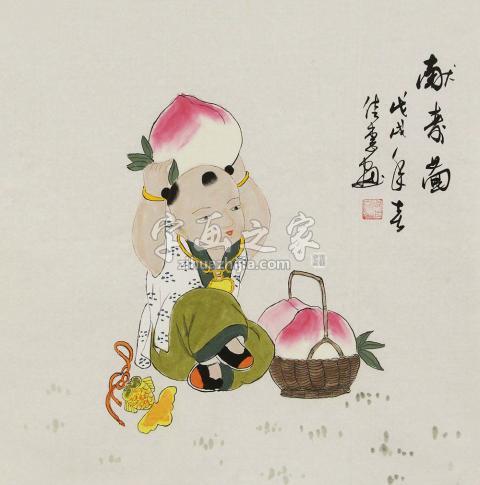 献寿图
戊戌年春
佳惠画
字画之家
zihuazhijia.com